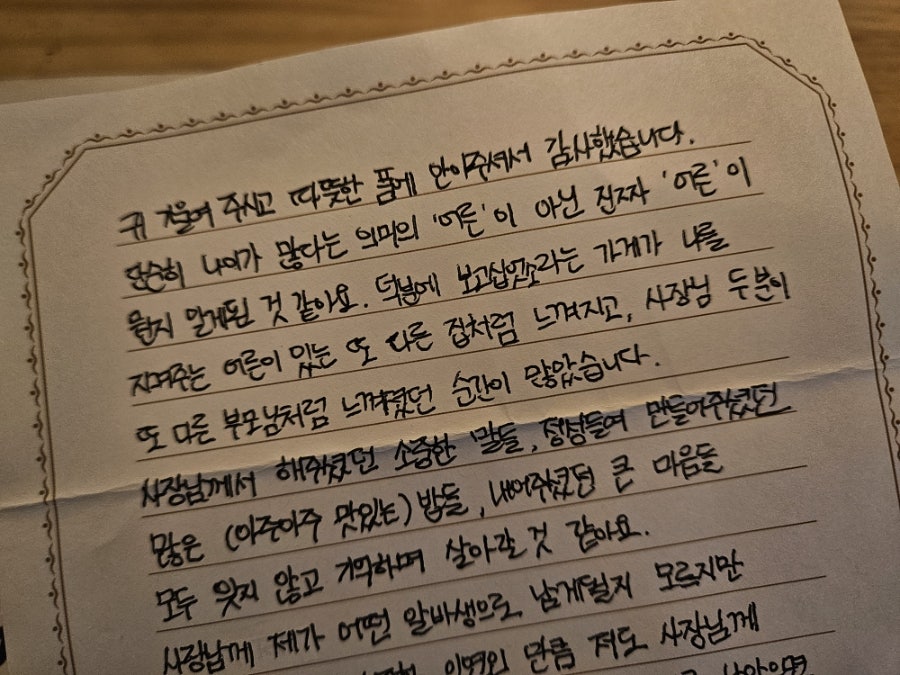 귀 기울여 주시고 따뜻한 품에 안아주셔서 감사했습니다.
단순히 나이가 많다는 의미의 '어른'이 아닌 진짜 '어른'이
뭔지 알게된 것 같아요. 덕분에 보고십엇소라는 가게가 나를
지켜주는 어른이 있는 또 다른 집처럼 느껴지고, 사장님 두분이
또 다른 부모님처럼 느껴졌던 순간이 많았습니다.
사장님께서 해주셨던 소중한 말들, 정성들여 만들어주셨던
많은 (아주아주 맛있는) 밥들, 내어주셨던 큰 마음들
모두 잊지 않고 기억하며 살아갈 것 같아요.
사장님께 제가 어떤 알바생으로 남게될지 모르지만
만큼 저도 사장님께